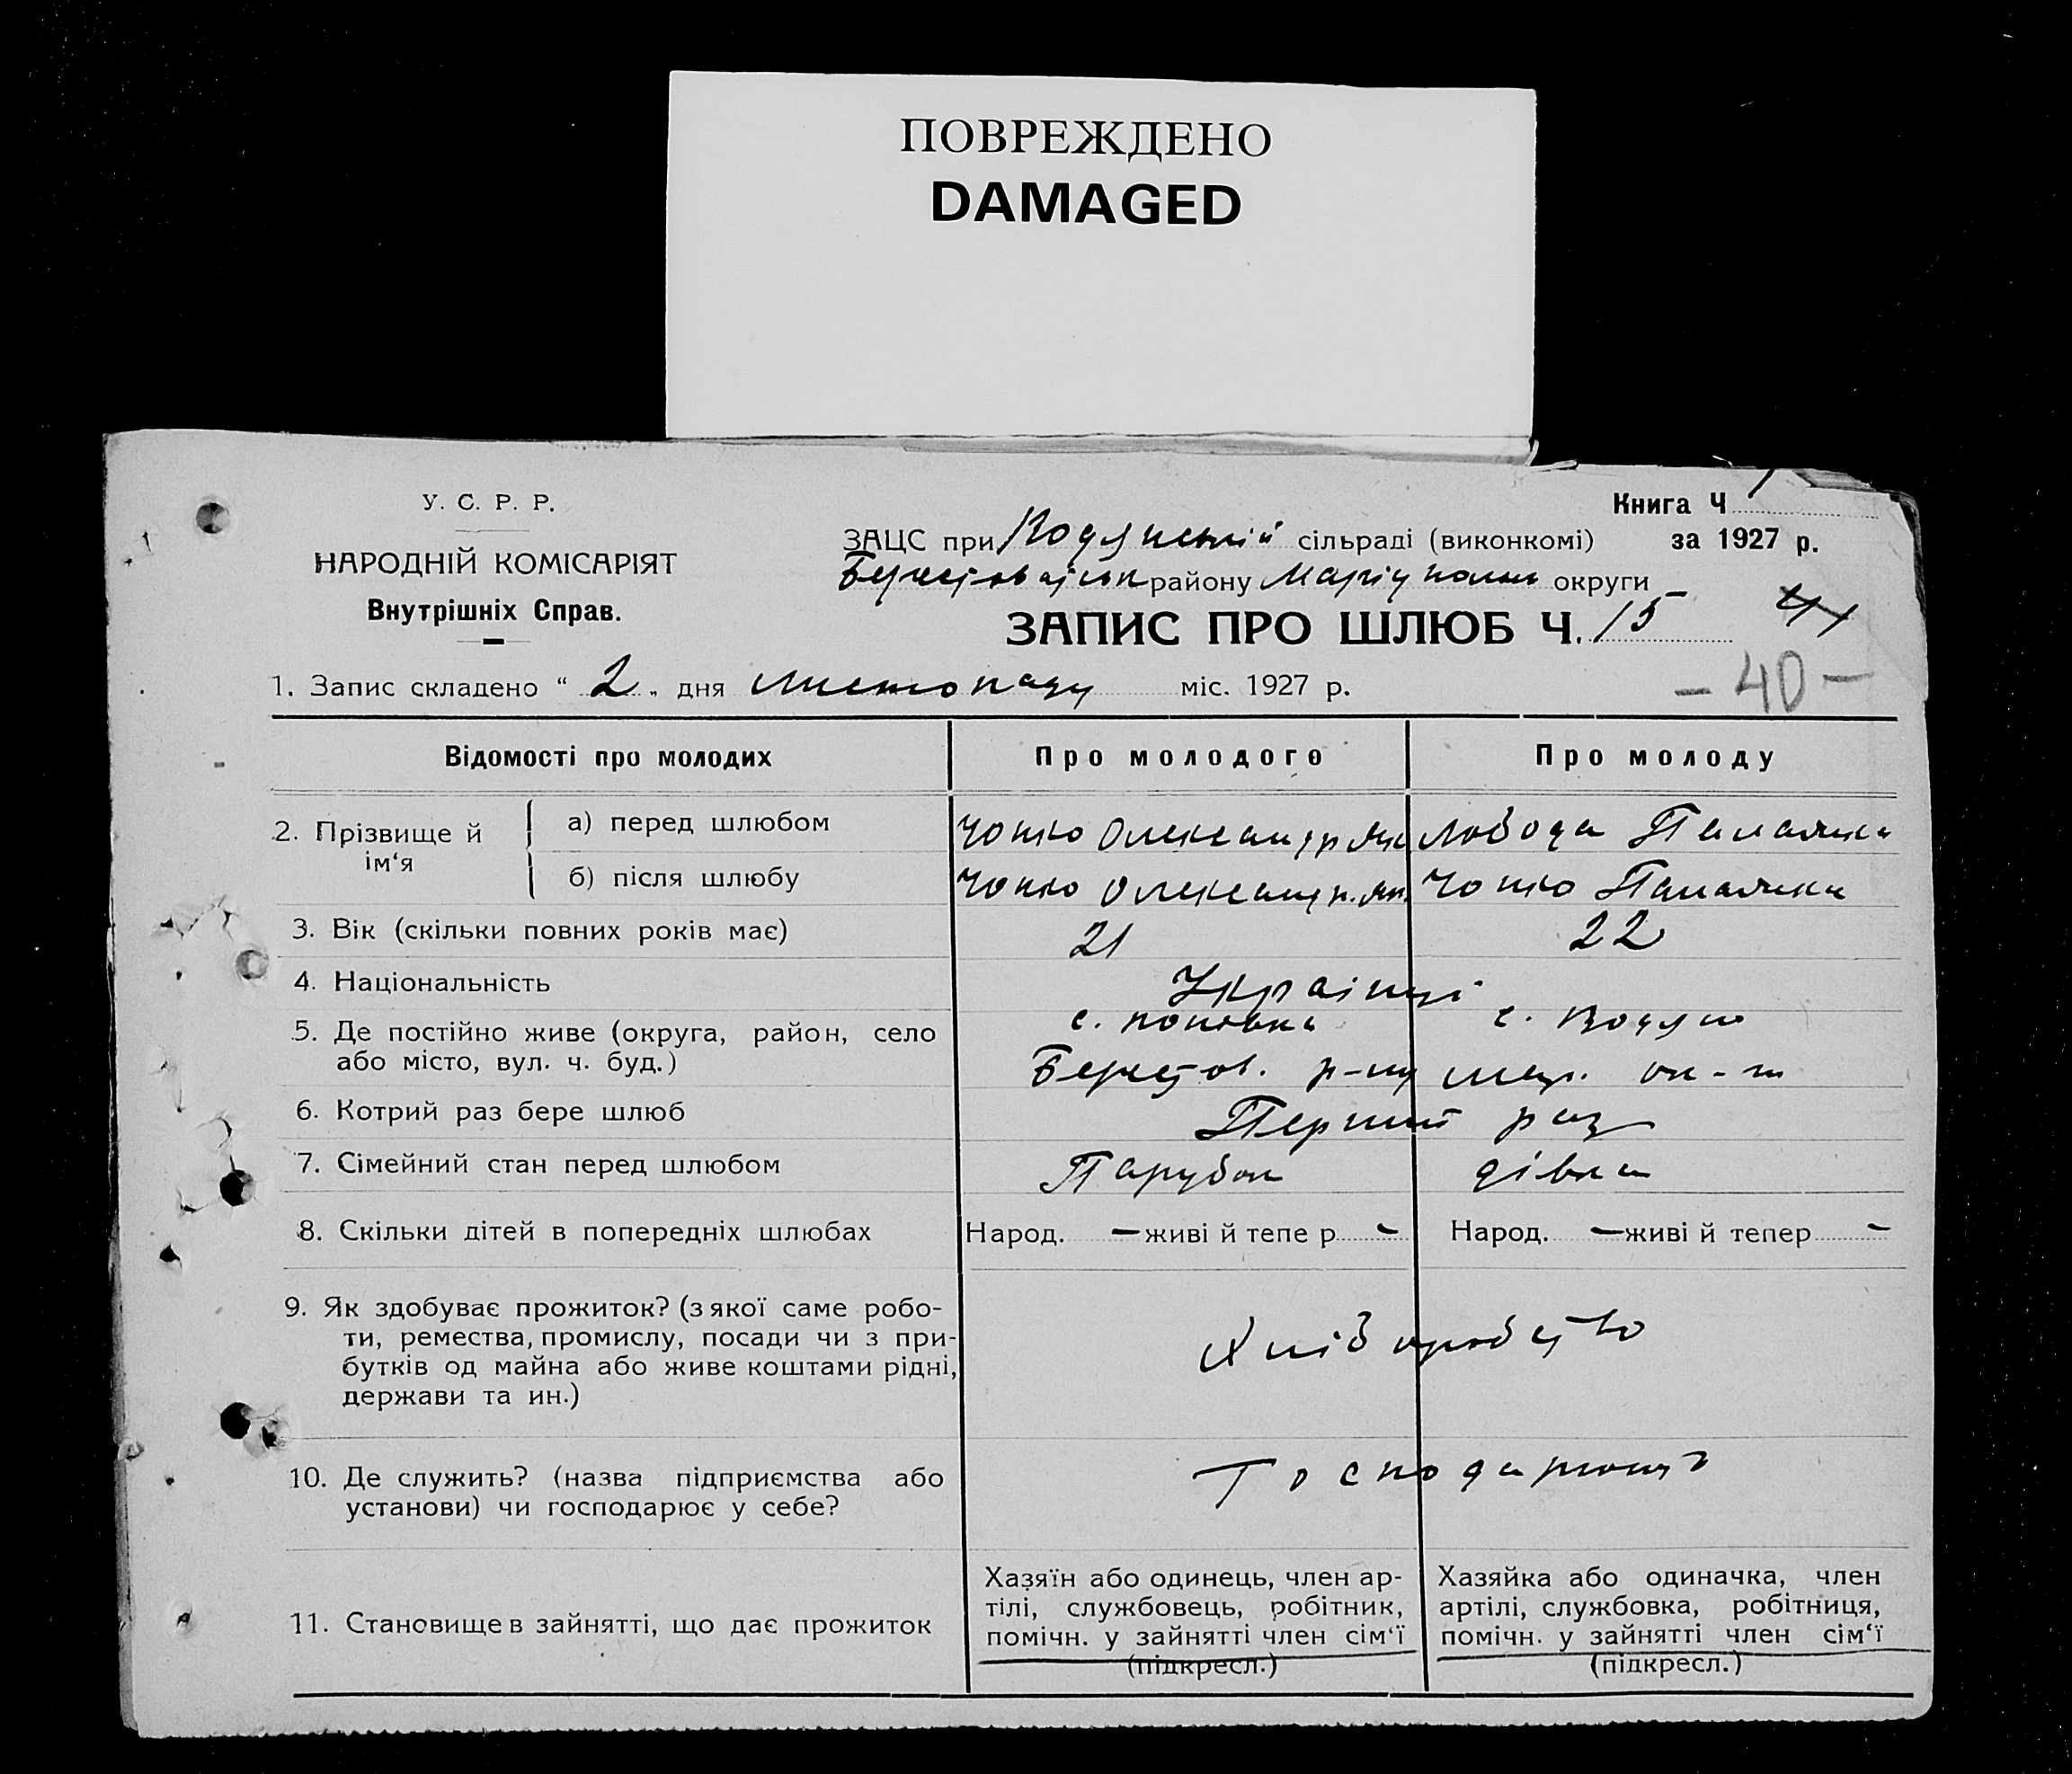 ПОВРЕЖДЕНО
DAMAGED
У. С. Р. Р.
НАРОДНІЙ КОМІСАРІЯТ
Внутрішніх Справ.
Книга Ч
ЗАЦС при Водянській сільраді (виконкомі) за 1927 р.
району округи
ЗАПИС ПРО ШЛЮБ Ч. 15
1. Запис складено “ 2 „ дня листопаду міс. 1927 р.
– 40 –
Відомості про молодих Про молодого Про молоду
2. Прізвище й ім‘я
а) перед шлюбом Чопко Олександр Лобода
б) після шлюбу Чопко Чопко
3. Вік (скільки повних років має) 21 22
4. Національність Українці
5. Де постійно живе (округа, район, село с. с. Водяно
або місто, вул. ч. буд.) Берестов. р-ну ок-ги
6. Котрий раз бере шлюб Перший раз
7. Сімейний стан перед шлюбом Парубок дівка
8. Скільки дітей в попередніх шлюбах Народ. – живі й тепер – Народ. – живі й тепер –
9. Як здобуває прожиток? (з якої саме робо-
ти, ремества, промислу, посади чи з при-
бутків од майна або живе коштами рідні,
держави та ин.)
Хліборобство
10. Де служить? (назва підприємства або
установи) чи господарює у себе?
11. Становище в зайнятті, що дає прожиток
Хазяїн або одинець, член ар-
тілі, службовець, робітник,
помічн. у зайнятті член сім‘ї
(підкресл.)
Хазяйка або одиначка, член
артілі, службовка, робітниця,
помічн. у зайнятті член сім‘ї
(підкресл.)